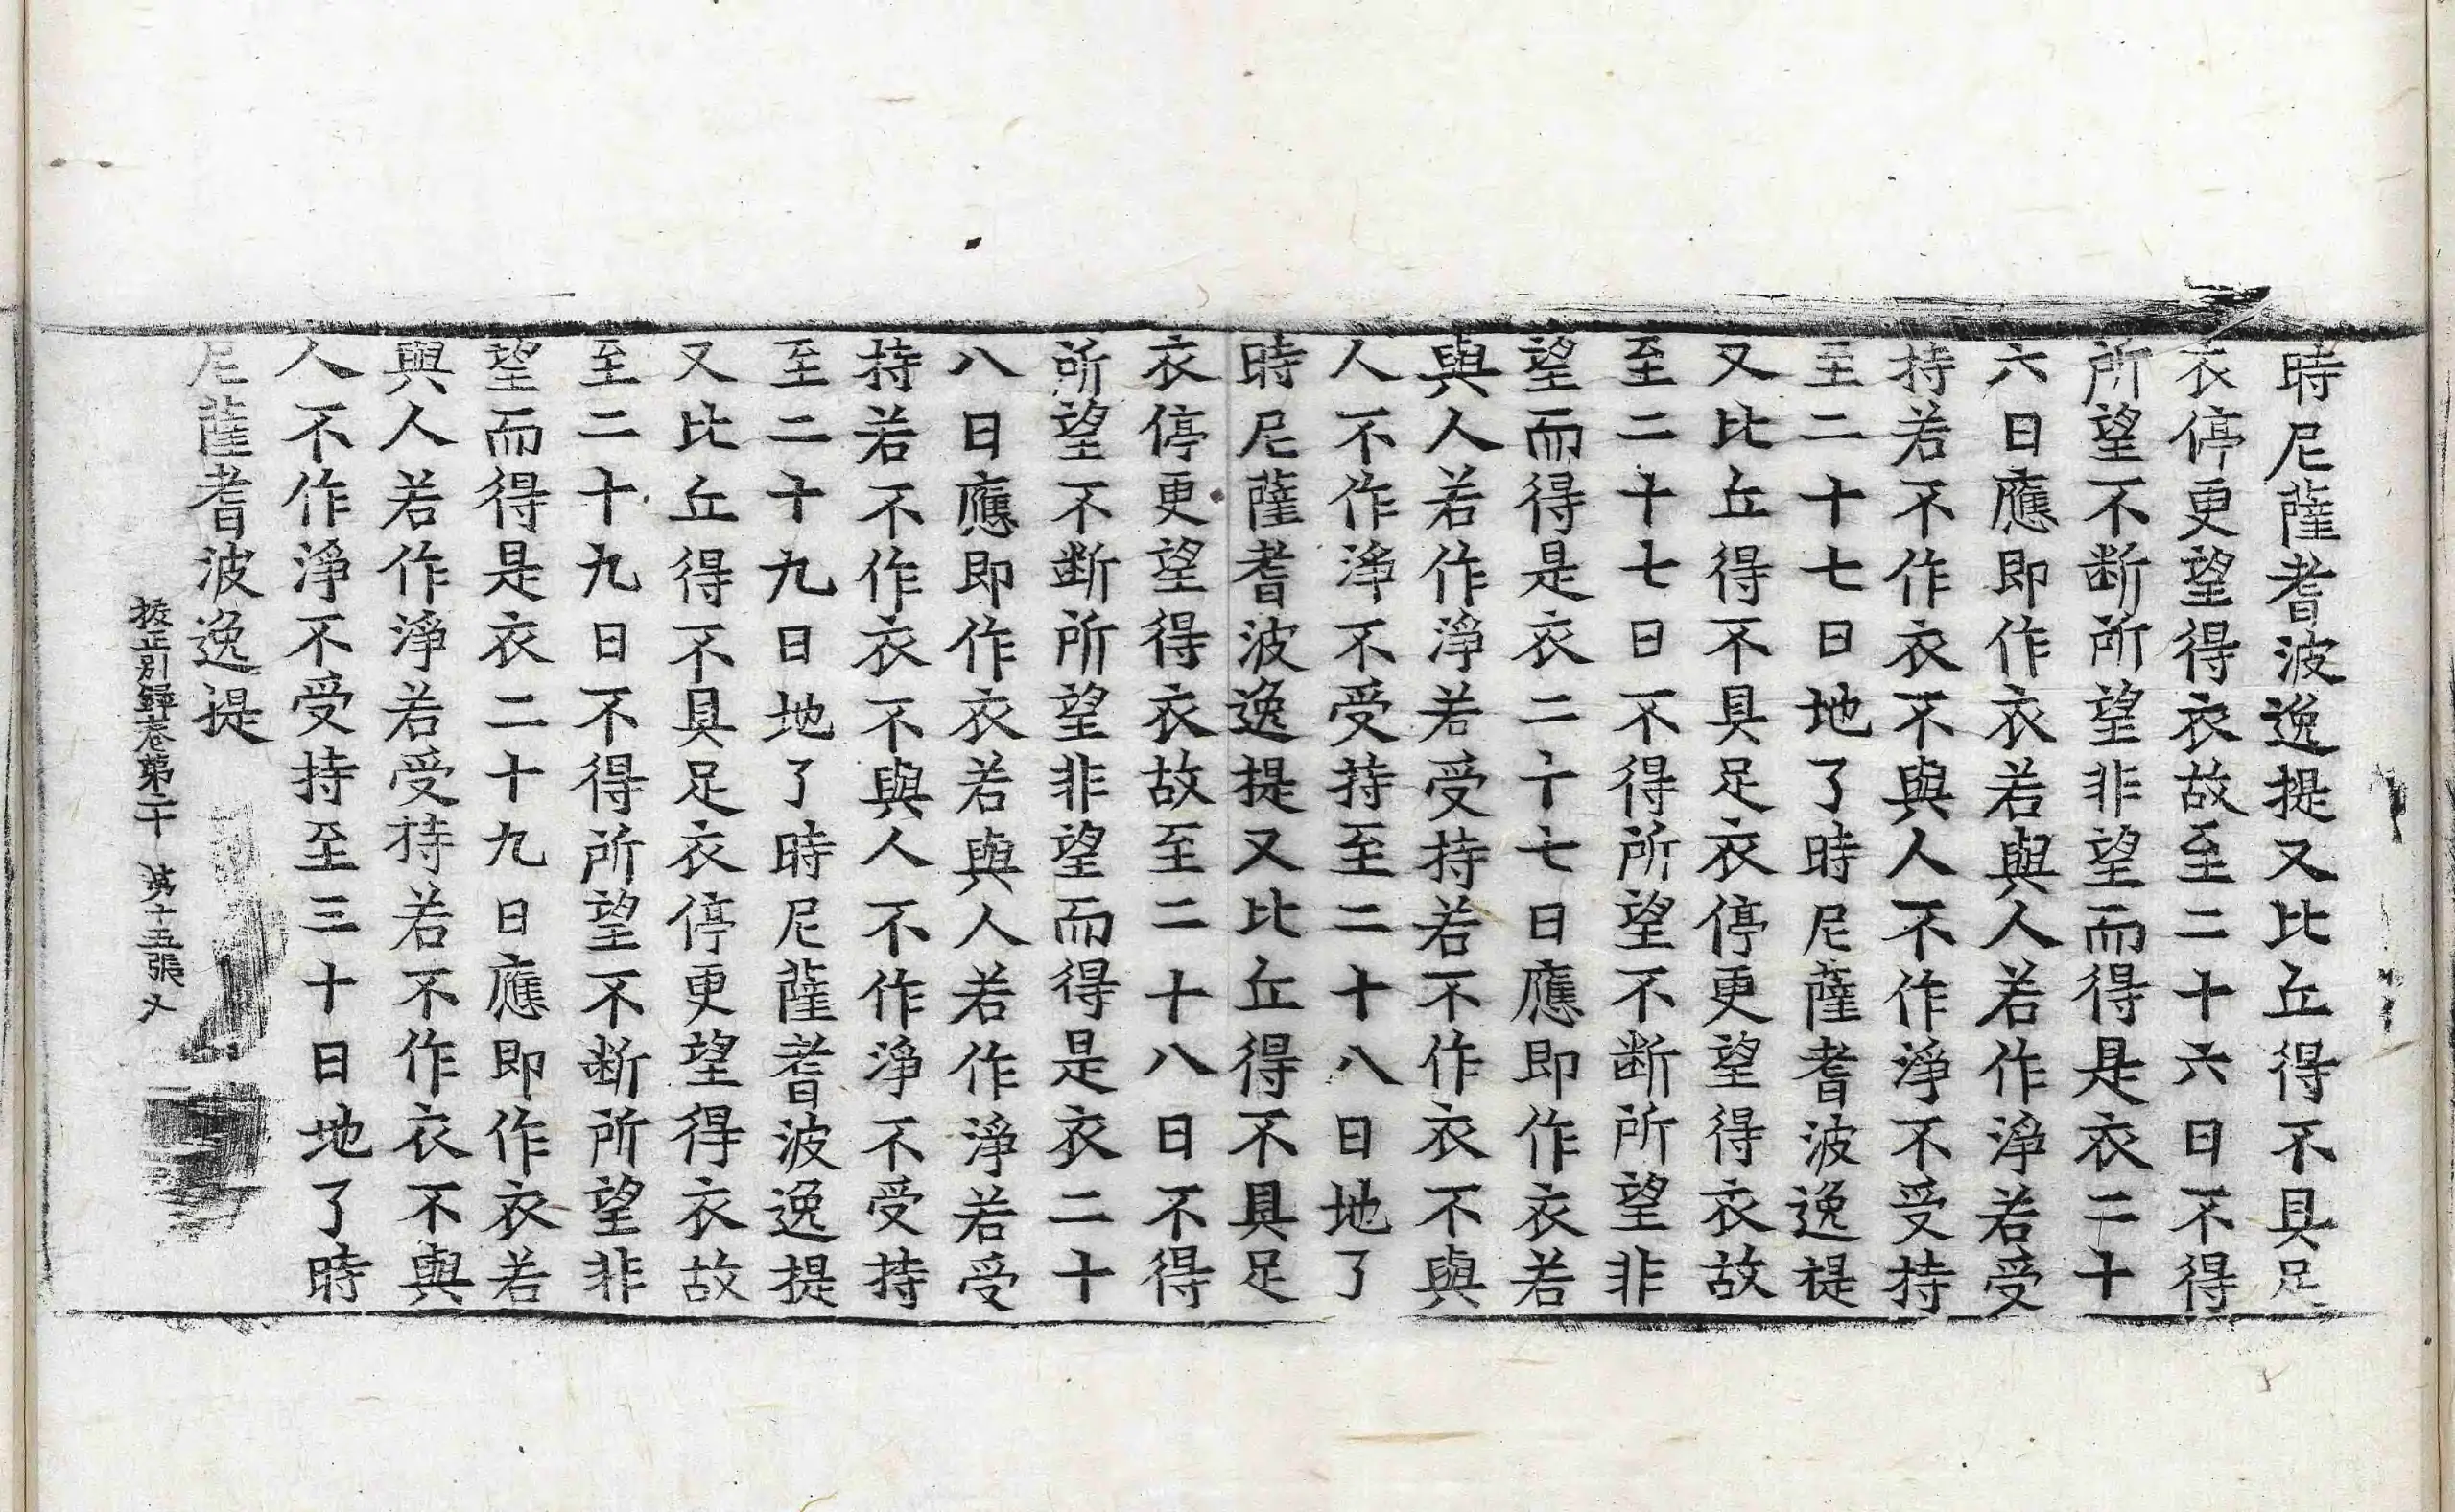 時尼薩耆波逸提又比丘得不具足
衣停更望得衣故至二十六日不得
所望不断所望非望而得是衣二十
六日應即作衣若與人若作淨若受
持若不作衣不與人不作淨不受持
至二十七日地了時尼薩耆波逸提
又比丘得不具足衣停更望得衣故
至二十七日不得所望不断所望非
望而得是衣二十七日應即作衣若
與人若作淨若受持若不作衣不與
人不作淨不受持至二十八日地了
時尼薩耆波逸提又比丘得不具足
衣停更望得衣故至二十八日不得
所望不断所望非望而得是衣二十
八日應即作衣若與人若作淨若受
持若不作衣不與人不作淨不受持
至二十九日地了時尼薩耆波逸提
又比丘得不具足衣停更望得衣故
至二十九日不得所望不断所望非
望而得是衣二十九日應即作衣若
與人若作淨若受持若不作衣不與
人不作淨不受持至三十日地了時
尼薩耆波逸提
挍正別錄卷第二十 第十五張